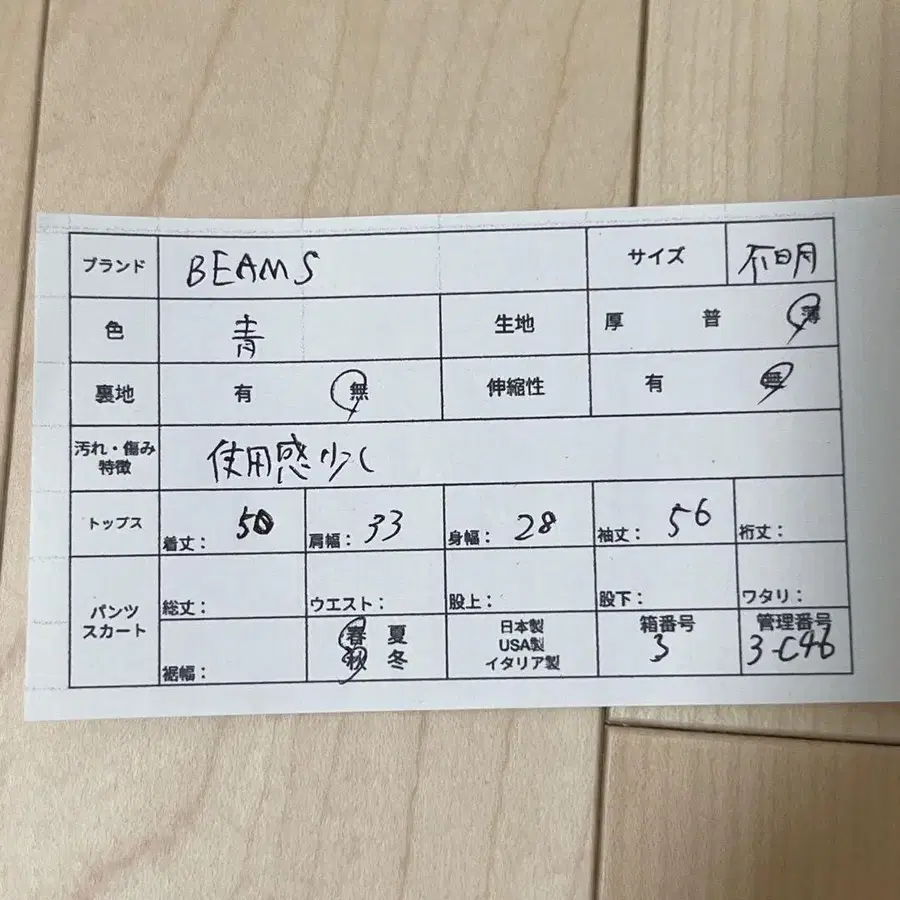 ブランド BEAMS サイズ 不明
色 青 生地 厚 普 薄
裏地 有 無 伸縮性 有 無
汚れ・傷み
特徴 使用感少し
トップス 着丈： 50 肩幅： 33 身幅： 28 袖丈： 56 裄丈：
パンツ
スカート
総丈： ウエスト： 股上： 股下： ワタリ：
裾幅：
春 夏
秋 冬
日本製
USA製
イタリア製
箱番号
3
管理番号
3-C46